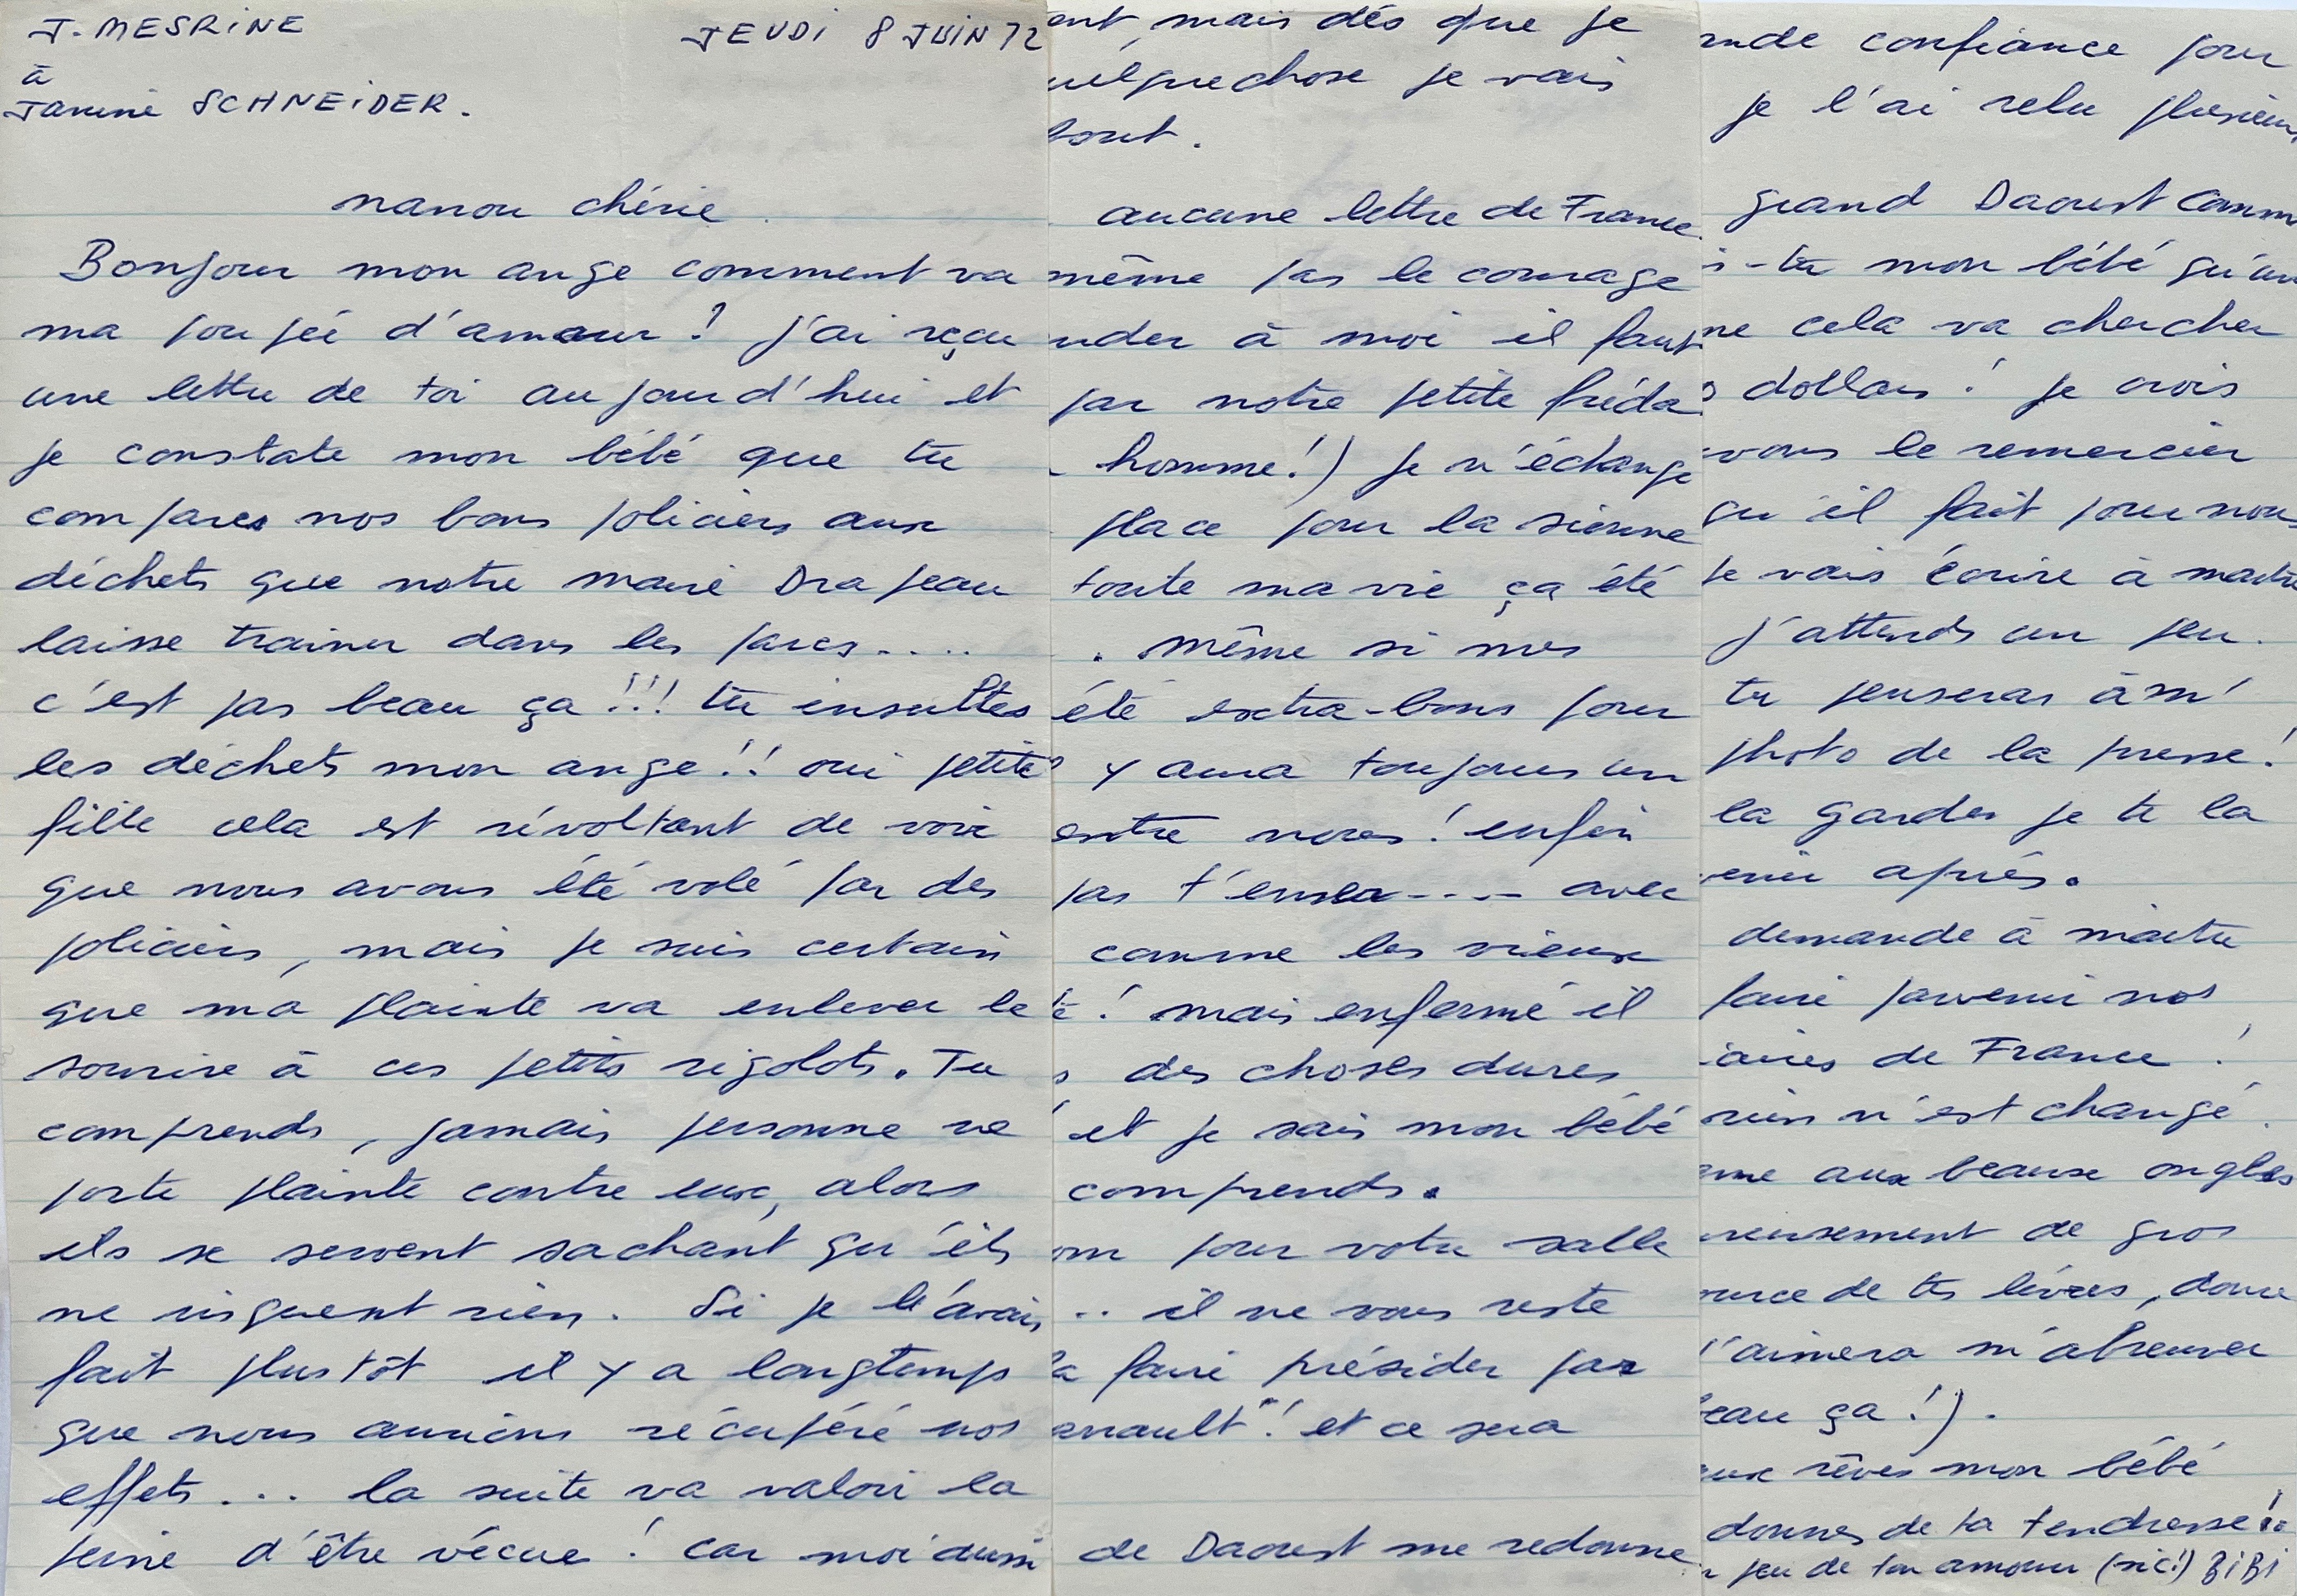 J. MESRINE
JEUDI 8 JUIN 72
à
Janine SCHNEIDER.
nanou chérie
Bonjour mon ange comment va
ma poupée d'amour ! J'ai reçu
une lettre de toi aujourd'hui et
je constate mon bébé que tu
compares nos bons policiers aux
déchets que notre maire Drapeau
laisse trainer dans les parcs....
c'est pas beau ça !!! tu insultes
les déchets mon ange !! oui petite
fille cela est révoltant de voir
que nous avons été volé par des
policiers, mais je suis certain
que ma plainte va enlever le
sourire à ces petits rigolots. Tu
comprends, jamais personne ne
porte plainte contre eux, alors
ils se servent sachant qu'ils
ne risquent rien. Si je l'avais
fait plustôt il y a longtemps
que nous aurions récupéré nos
effets... la suite va valoir la
peine d'être vécue ! car moi aussi
ent, mais dés que je
uelquechose je vais
bout.
aucune lettre de France
même pas le courage
nder à moi il faut
par notre petite fréda
homme !) je n'échange
place pour la sienne
toute ma vie ça été
. même si mes
été extra-bons pour
y aura toujours un
entre nous ! enfin
pas t'emm---- avec
comme les vieux
té ! mais enfermé il
s des choses dures
et je sais mon bébé
comprends.
om pour votre salle
.. il ne vous reste
la faire présider par
enault" ! et ce sera
de Daoust me redonne
ande confiance pour
je l'ai relu plusieurs
grand Daoust comme
s-tu mon bébé qu'un
me cela va chercher
s dollars ! je crois
vons le remercier
qu'il fait pour nous
je vais écrire à maitre
j'attends un peu.
tu penseras à m'
photo de la presse !
la garder je te la
enir après.
demande à maitre
faire parvenir nos
iaires de France !
rien n'est changé.
eme aux beaux ongles
reusement de gros
ource de tes lèvres, donc
j'aimera m'abreuver
beau ça !).
eux rêves mon bébé
donnes de ta tendresse !!
n peu de ton amour (sic!) BiBi